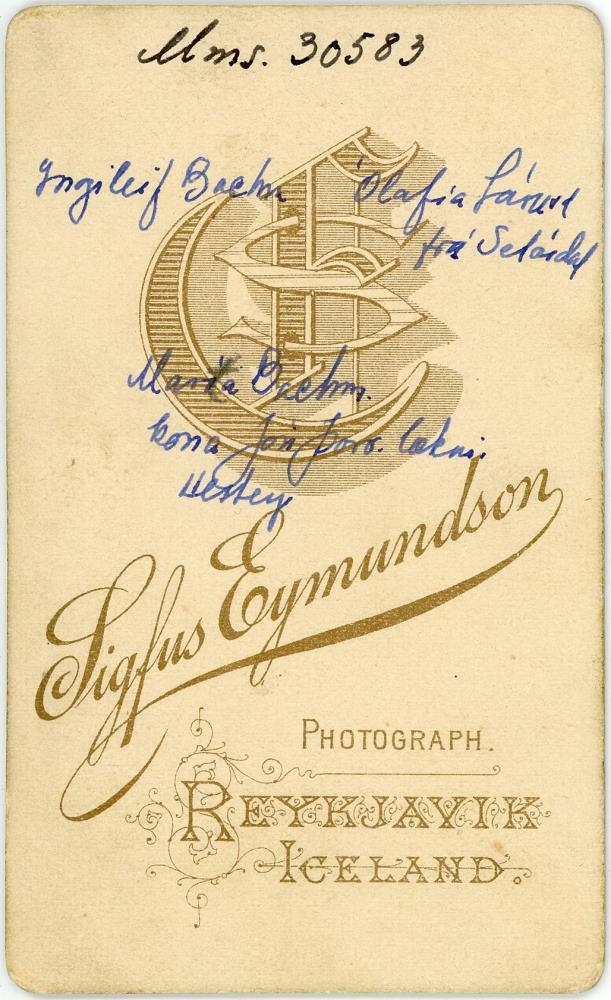 Mms. 30583
Ingileif Bachm
Ólafía Lárusd
frá Selárdal
María Bachm.
kona Jón Þorv. læknis
Hesteyri
Sigfus Eymundson
PHOTOGRAPH.
REYKJAVIK
ICELAND.